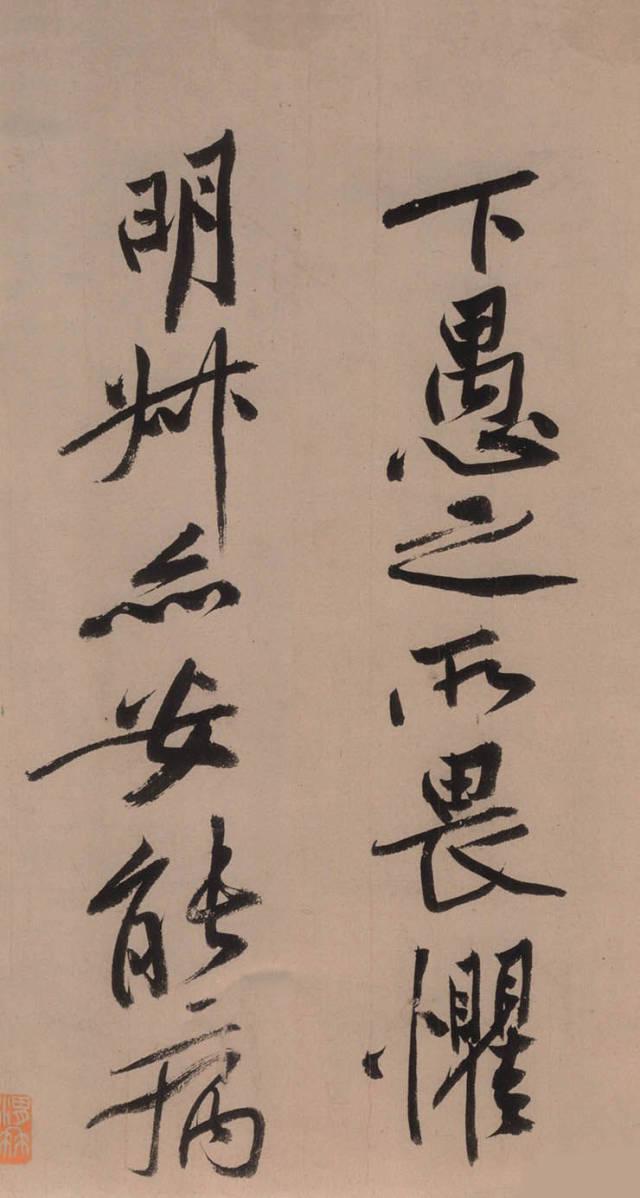 下愚之所畏懼
明叔亦安能病